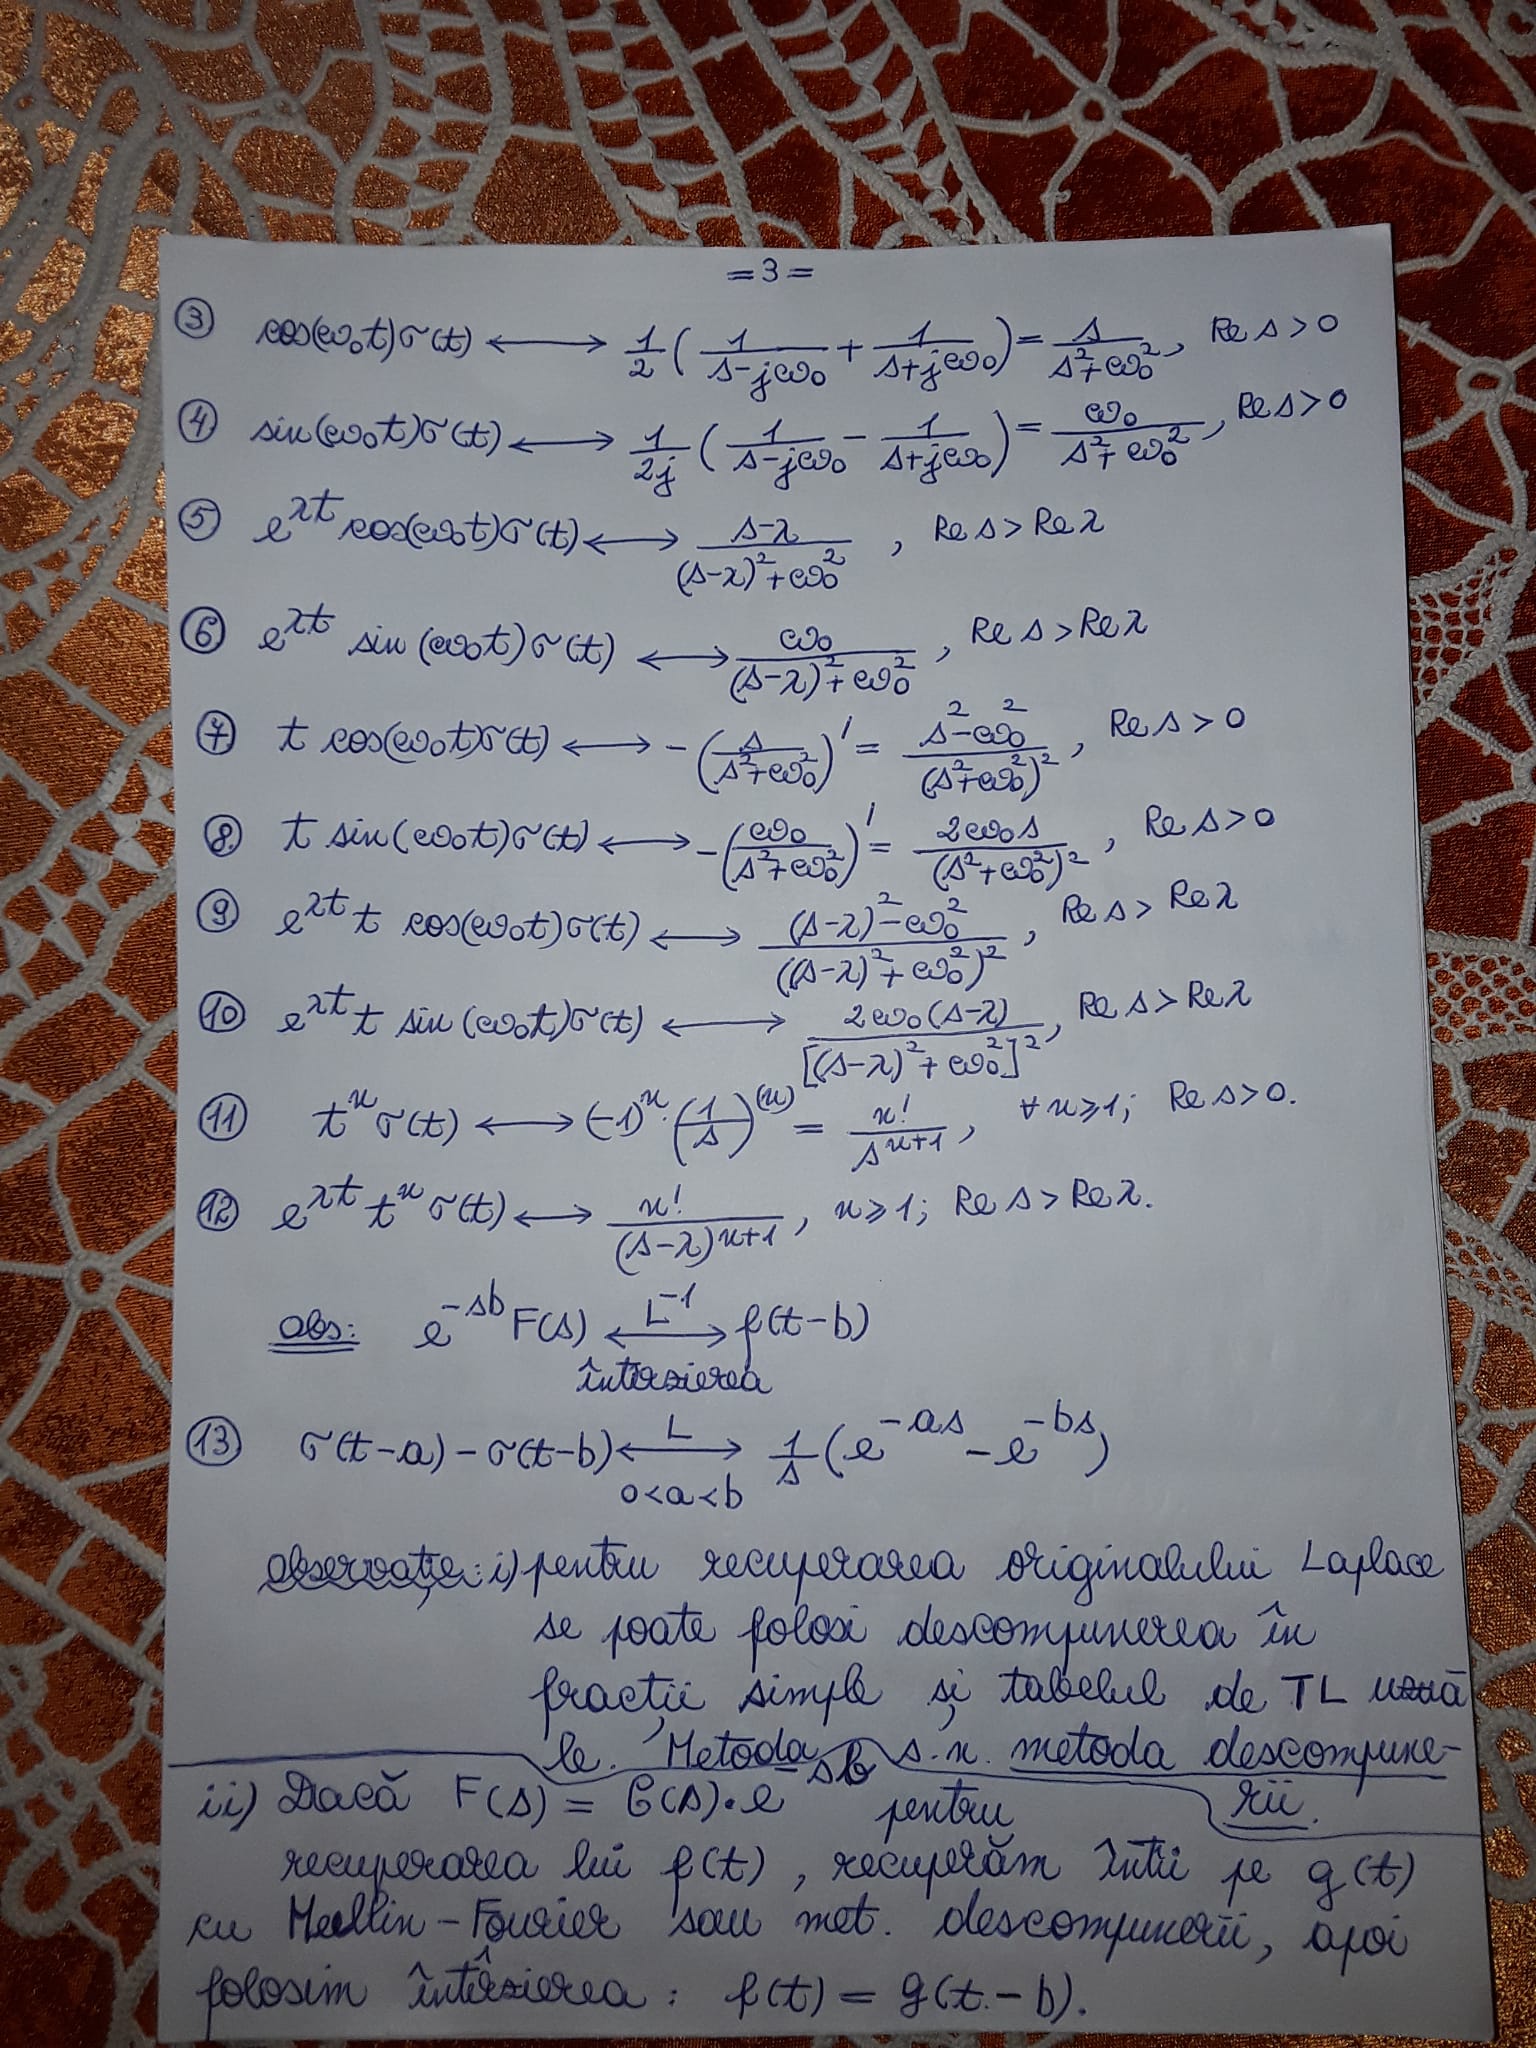 =3=
③ cos(ω₀t)σ(t) ⟷ 1/2 (1/(s-jω₀) + 1/(s+jω₀)) = s/(s²+ω₀²), Re s > 0
④ sin(ω₀t)σ(t) ⟷ 1/2j (1/(s-jω₀) - 1/(s+jω₀)) = ω₀/(s²+ω₀²), Re s > 0
⑤ e^{λt} cos(ω₀t)σ(t) ⟷ (s-λ)/((s-λ)²+ω₀²), Re s > Re λ
⑥ e^{λt} sin(ω₀t)σ(t) ⟷ ω₀/((s-λ)²+ω₀²), Re s > Re λ
⑦ t cos(ω₀t)σ(t) ⟷ -(s/(s²+ω₀²))' = (s²-ω₀²)/(s²+ω₀²)², Re s > 0
⑧ t sin(ω₀t)σ(t) ⟷ -(ω₀/(s²+ω₀²))' = 2ω₀s/(s²+ω₀²)², Re s > 0
⑨ e^{λt} t cos(ω₀t)σ(t) ⟷ ((s-λ)²-ω₀²)/((s-λ)²+ω₀²)², Re s > Re λ
⑩ e^{λt} t sin(ω₀t)σ(t) ⟷ 2ω₀(s-λ)/[(s-λ)²+ω₀²]², Re s > Re λ
⑪ t^n σ(t) ⟷ (-1)^n · (1/s)^{(n)} = n!/s^{n+1}, ∀ n ≥ 1; Re s > 0.
⑫ e^{λt} t^n σ(t) ⟷ n!/(s-λ)^{n+1}, n ≥ 1; Re s > Re λ.
obs: e^{-sb} F(s) ⟷ L^{-1} f(t-b)
întârzierea
⑬ σ(t-a) - σ(t-b) ⟷ L 1/s (e^{-as} - e^{-bs})
0<a<b
observație: i) pentru recuperarea originalului Laplace
se poate folosi descompunerea în
fracții simple și tabelul de TL uzuă
le. Metoda s.n. metoda descompune-
rii.
ii) Dacă F(s) = G(s)·e^{-sb} pentru
recuperarea lui f(t), recuperăm întîi pe g(t)
cu Mellin-Fourier sau met. descompunerii, apoi
folosim întârzierea: f(t) = g(t-b).